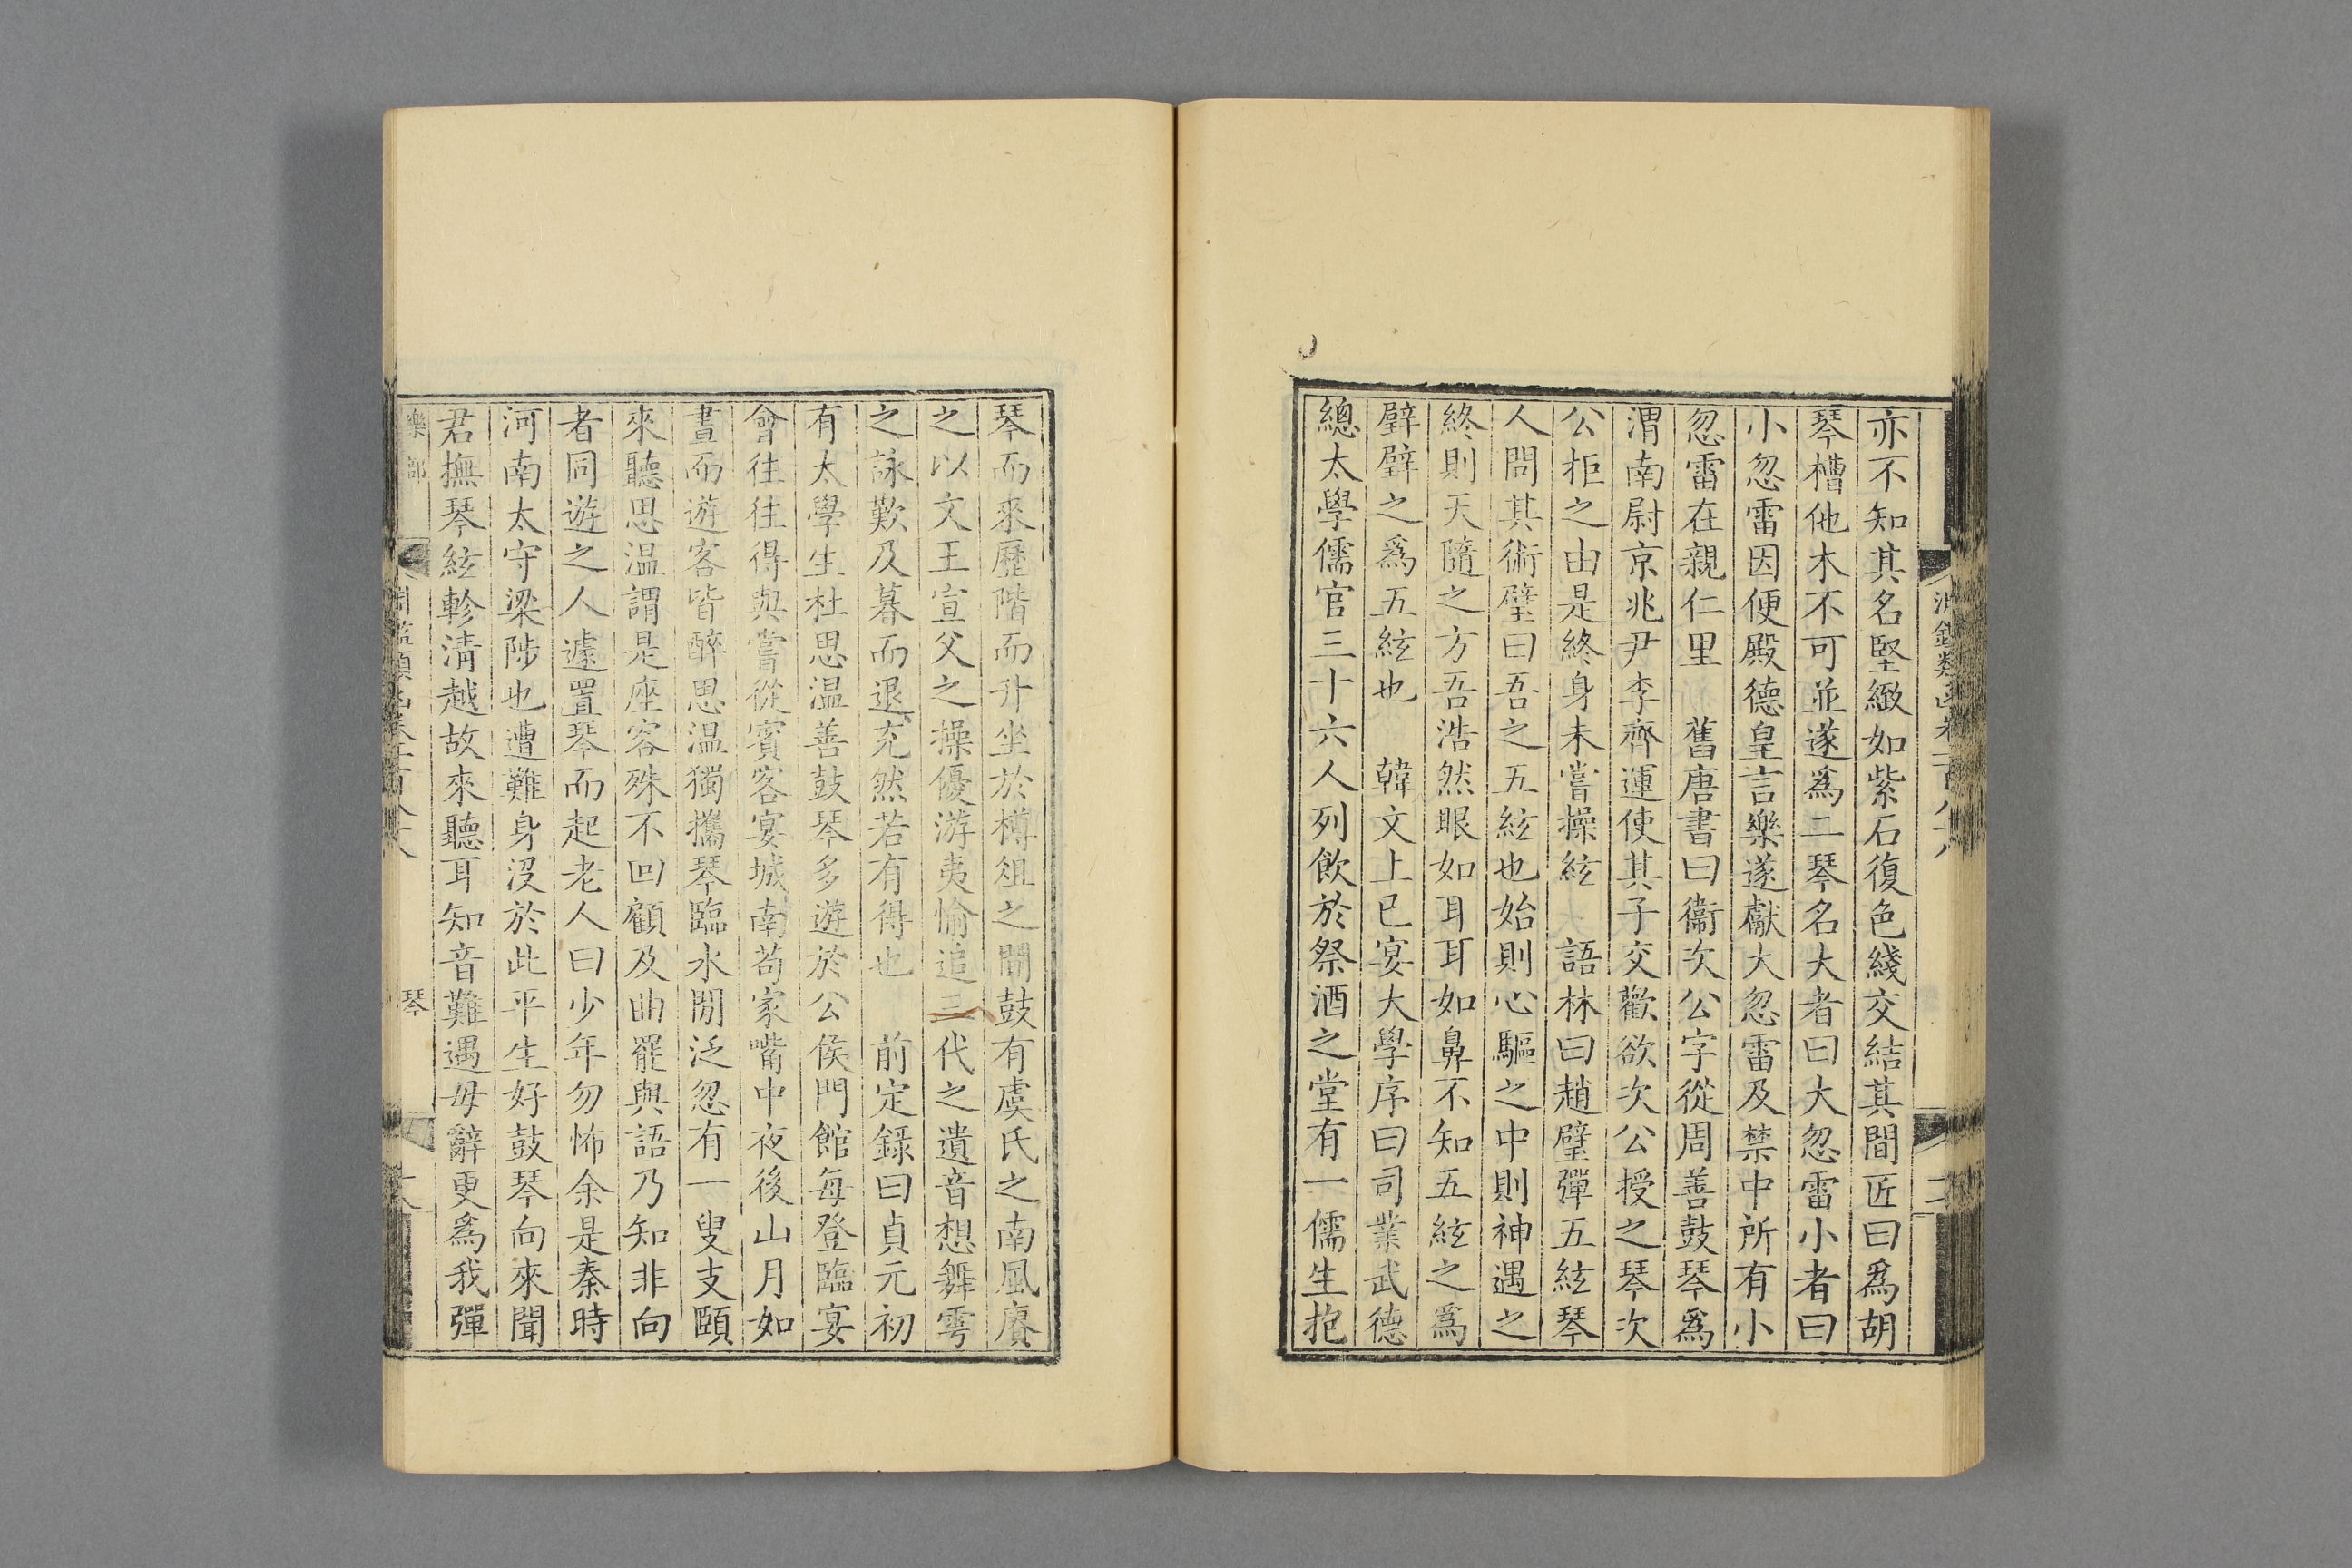 亦不知其名堅緻如紫石復色綫交結其間匠曰爲胡
琴槽他木不可並遂爲二琴名大者曰大忽雷小者曰
小忽雷因便殿德皇言樂遂獻大忽雷及禁中所有小
忽雷在親仁里 舊唐書曰衞次公字從周善鼓琴爲
渭南尉京兆尹李齊運使其子交歡欲次公授之琴次
公拒之由是終身未嘗操絃 語林曰趙璧彈五絃琴
人問其術璧曰吾之五絃也始則心驅之中則神遇之
終則天隨之方吾浩然眼如耳耳如鼻不知五絃之爲
璧璧之爲五絃也 韓文上巳宴大學序曰司業武德
總太學儒官三十六人列飲於祭酒之堂有一儒生抱
琴而來歷階而升坐於樽俎之間鼓有虞氏之南風賡
之以文王宣父之操優游夷愉追三代之遺音想舞雩
之詠歎及暮而退充然若有得也 前定錄曰貞元初
有太學生杜思温善鼓琴多遊於公侯門館每登臨宴
會往往得與嘗從賓客宴城南苟家嘴中夜後山月如
晝而遊客皆醉思温獨攜琴臨水閒泛忽有一叟支頤
來聽思温謂是座客殊不回顧及曲罷與語乃知非向
者同遊之人遽置琴而起老人曰少年勿怖余是秦時
河南太守梁陟也遭難身没於此平生好鼓琴向來聞
君撫琴絃軫清越故來聽耳知音難遇毋辭更爲我彈
樂部 琴